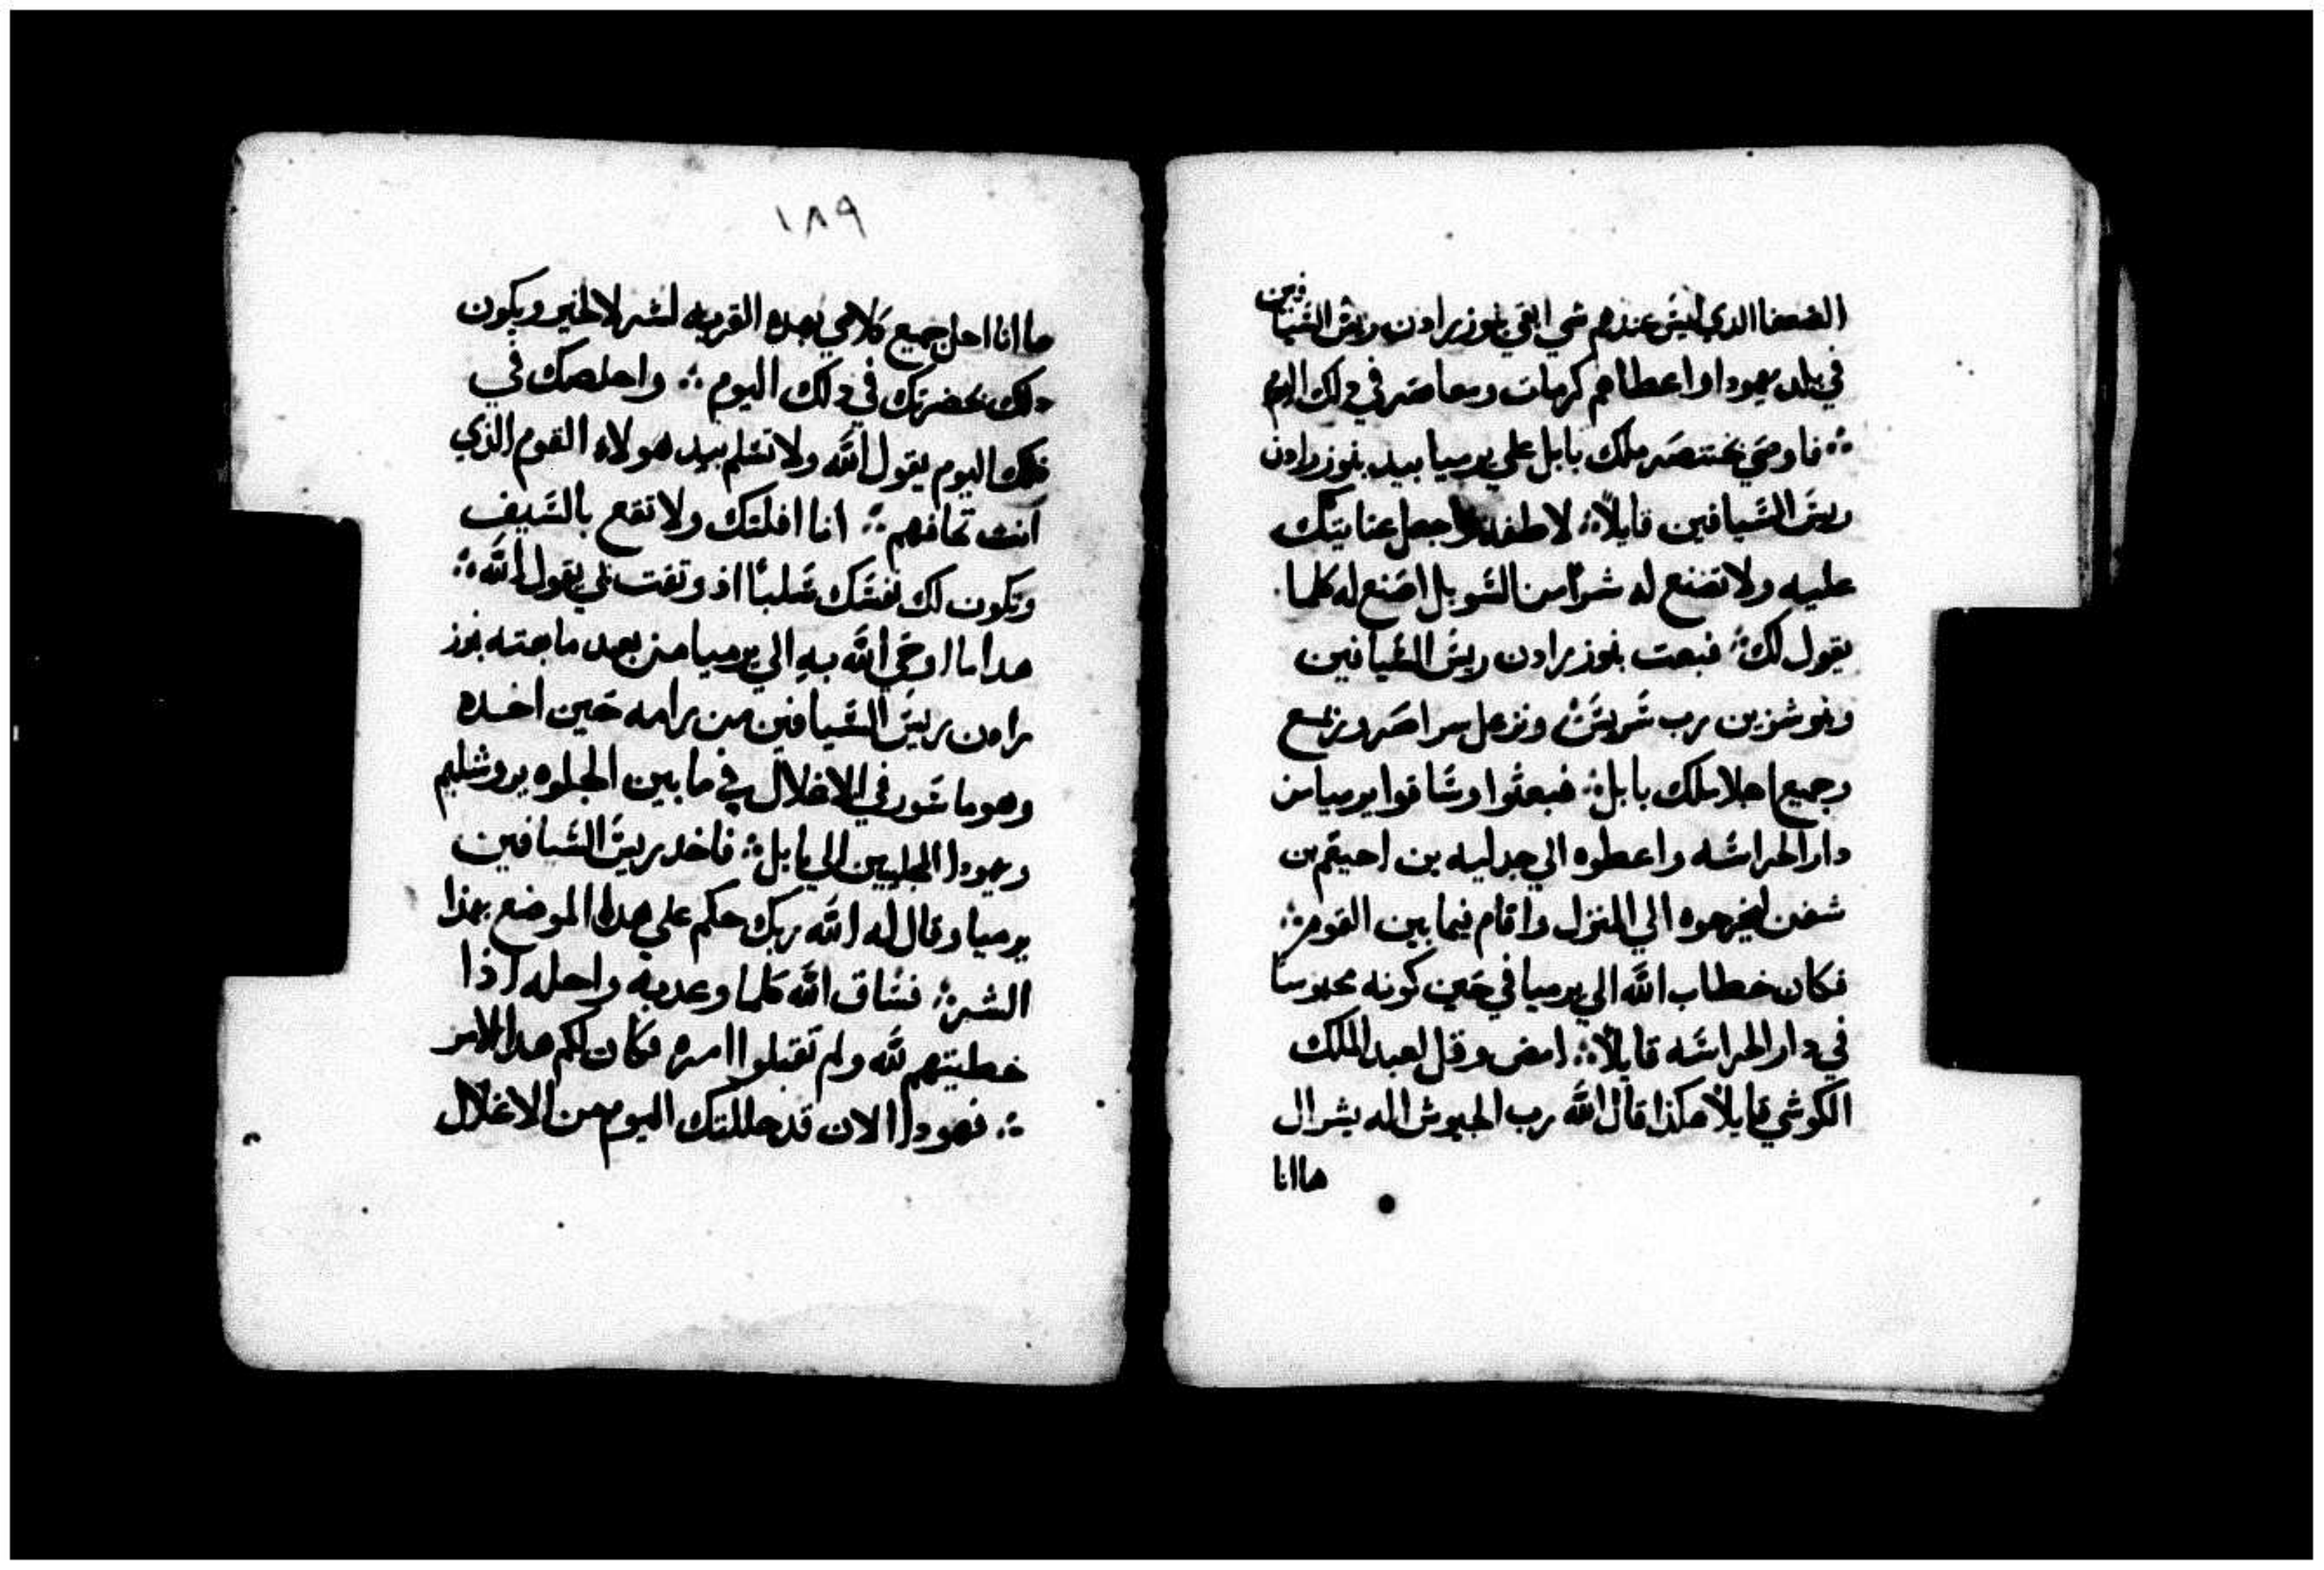 الضعفا الدي ليس عندهم شي ابقي بنوزرادن ريس السيافين
في بلد يهودا واعطاهم كرمات ومعاصر في دلك اليوم
؞ فاوصي بختنصر ملك بابل علي يرميا بيد بنوزرادن
ريس السيافين قايلاً؞ لاطفه واجعل عنايتك
عليه ولا تصنع له شرا من السو بل اصنع له كلما
يقول لك؞ فبعت بنوزرادن ريس السيافين
ونبوشزبن رب سريس ونرعل سراصر ورب مع
وجميع اجلا ملك بابل؞ فبعثوا وساقوا يرميا من
دار الحراسه واعطوه الي جدليه بن احيقم بن
شفن ليخرجوه الي المنزل واقام فيما بين القوم؞
فكان خطاب الله الي يرميا في حين كونه محبوسا
في دار الحراسه قايلاً؞ امض وقل لعبد الملك
الكوشي قايلاً هكذا قال الله رب الجيوش اله يشرال
ها انا
١٨٩
ها انا احل جميع كلامي بهده القريه لشر لا لخير ويكون
دلك بحضرتك في دلك اليوم؞ واخلصك في
ذلك اليوم يقول الله ولا تسلم بيد هولاه القوم الذي
انت تخافهم؞ انا افلتك ولا تقع بالسيف
وتكون لك نفسك سلبًا اذ وتقت بي يقول الله؞
هدا ما اوحي الله به الي يرميا من بعد ما بعته بنوز
رادن ريس السيافين من رامه حين اخده
وهو ماسور في الاغلال في ما بين الجلوه يروشليم
ويهودا المجليين الي بابل؞ فاخد ريس السيافين
يرميا وقال له الله ربك حكم علي هدا الموضع بهذا
الشر؞ فساق الله كلما وعد به واحله اذا
خطيتهم لله ولم تقبلوا امره فكان لكم هدا الامر
؞ فهودا الان قد حللتك اليوم من الاغلال